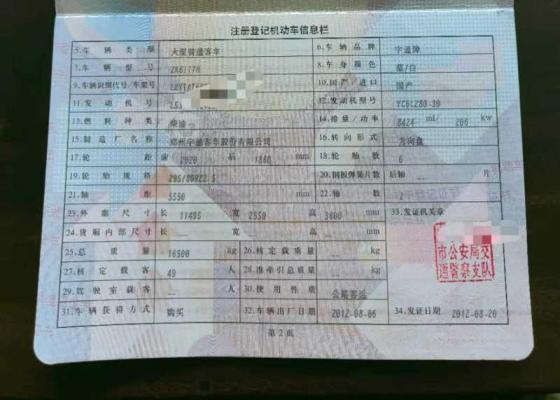 注册登记机动车信息栏
5.车辆类型 大型普通客车 6.车辆品牌 宇通牌
7.车辆型号 8.车身颜色 蓝/白
9.车辆识别代号/车架号 10.国产/进口 国产
11.发动机号 12.发动机型号 YC6L280-30
13.燃料种类 柴油 14.排量/功率 8424 ml/ 206 kw
15.制造厂名称 郑州宇通客车股份有限公司 16.转向形式 方向盘
17.轮距 前 2020 后 1860 mm 18.轮胎数 6
19.轮胎规格 295/80R22.5 20.钢板弹簧片数 后轴 片
21.轴距 5550 mm 22.轴数 2
23.外廓尺寸 长 11495 宽 2550 高 3600 mm 33.发证机关章
24.货厢内部尺寸 长 宽 高 mm
25.总质量 16500 kg 26.核定载质量 kg
27.核定载客 49 人 28.准牵引总质量 kg
29.驾驶室载客 人 30.使用性质 公路客运
31.车辆获得方式 购买 32.车辆出厂日期 2012-08-06 34.发证日期 2012-08-20
市公安局交
通警察支队
第2页